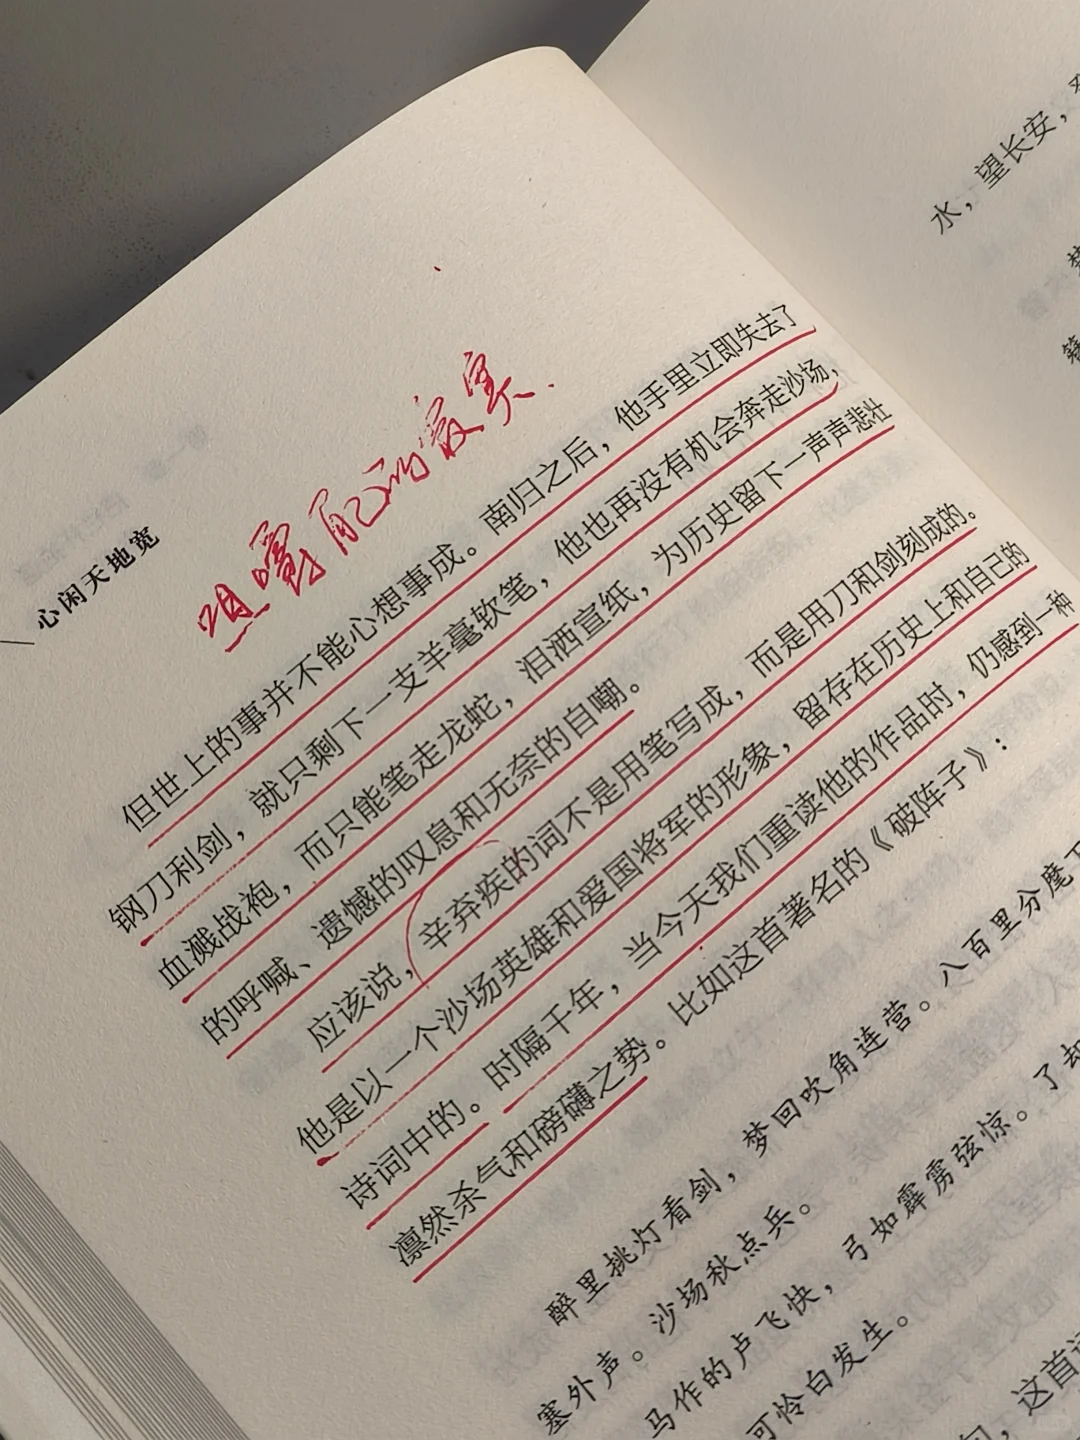 水，望长安，
心闲天地宽
咀嚼
的寂寞.
但世上的事并不能心想事成。南归之后，他手里立即失去了
钢刀利剑，就只剩下一支羊毫软笔，他也再没有机会奔走沙场，
血溅战袍，而只能笔走龙蛇，泪洒宣纸，为历史留下一声声悲壮
的呼喊、遗憾的叹息和无奈的自嘲。
应该说，辛弃疾的词不是用笔写成，而是用刀和剑刻成的。
他是以一个沙场英雄和爱国将军的形象，留存在历史上和自己的
诗词中的。时隔千年，当今天我们重读他的作品时，仍感到一种
凛然杀气和磅礴之势。比如这首著名的《破阵子》：
醉里挑灯看剑，梦回吹角连营。八百里分麾下
塞外声。沙场秋点兵。
马作的卢飞快，弓如霹雳弦惊。了却
可怜白发生。
，这首词